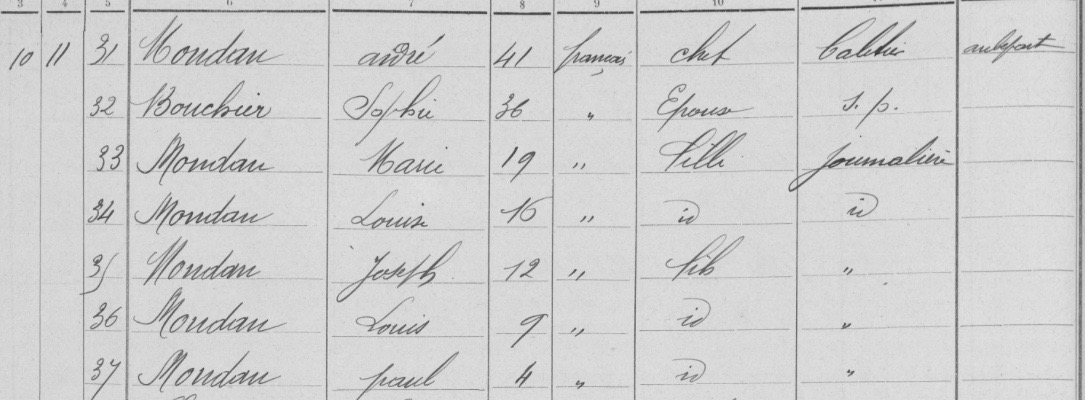 3 4 5 6 7 8 9 10
10 11 31 Mondan andré 41 français chef
32 Bouchier Sophie 36 " Epouse s. p.
33 Mondan Marie 19 " fille journalière
34 Mondan Louise 16 " id id
35 Mondan Joseph 12 " fils "
36 Mondan Louis 9 " id "
37 Mondan paul 4 " id "